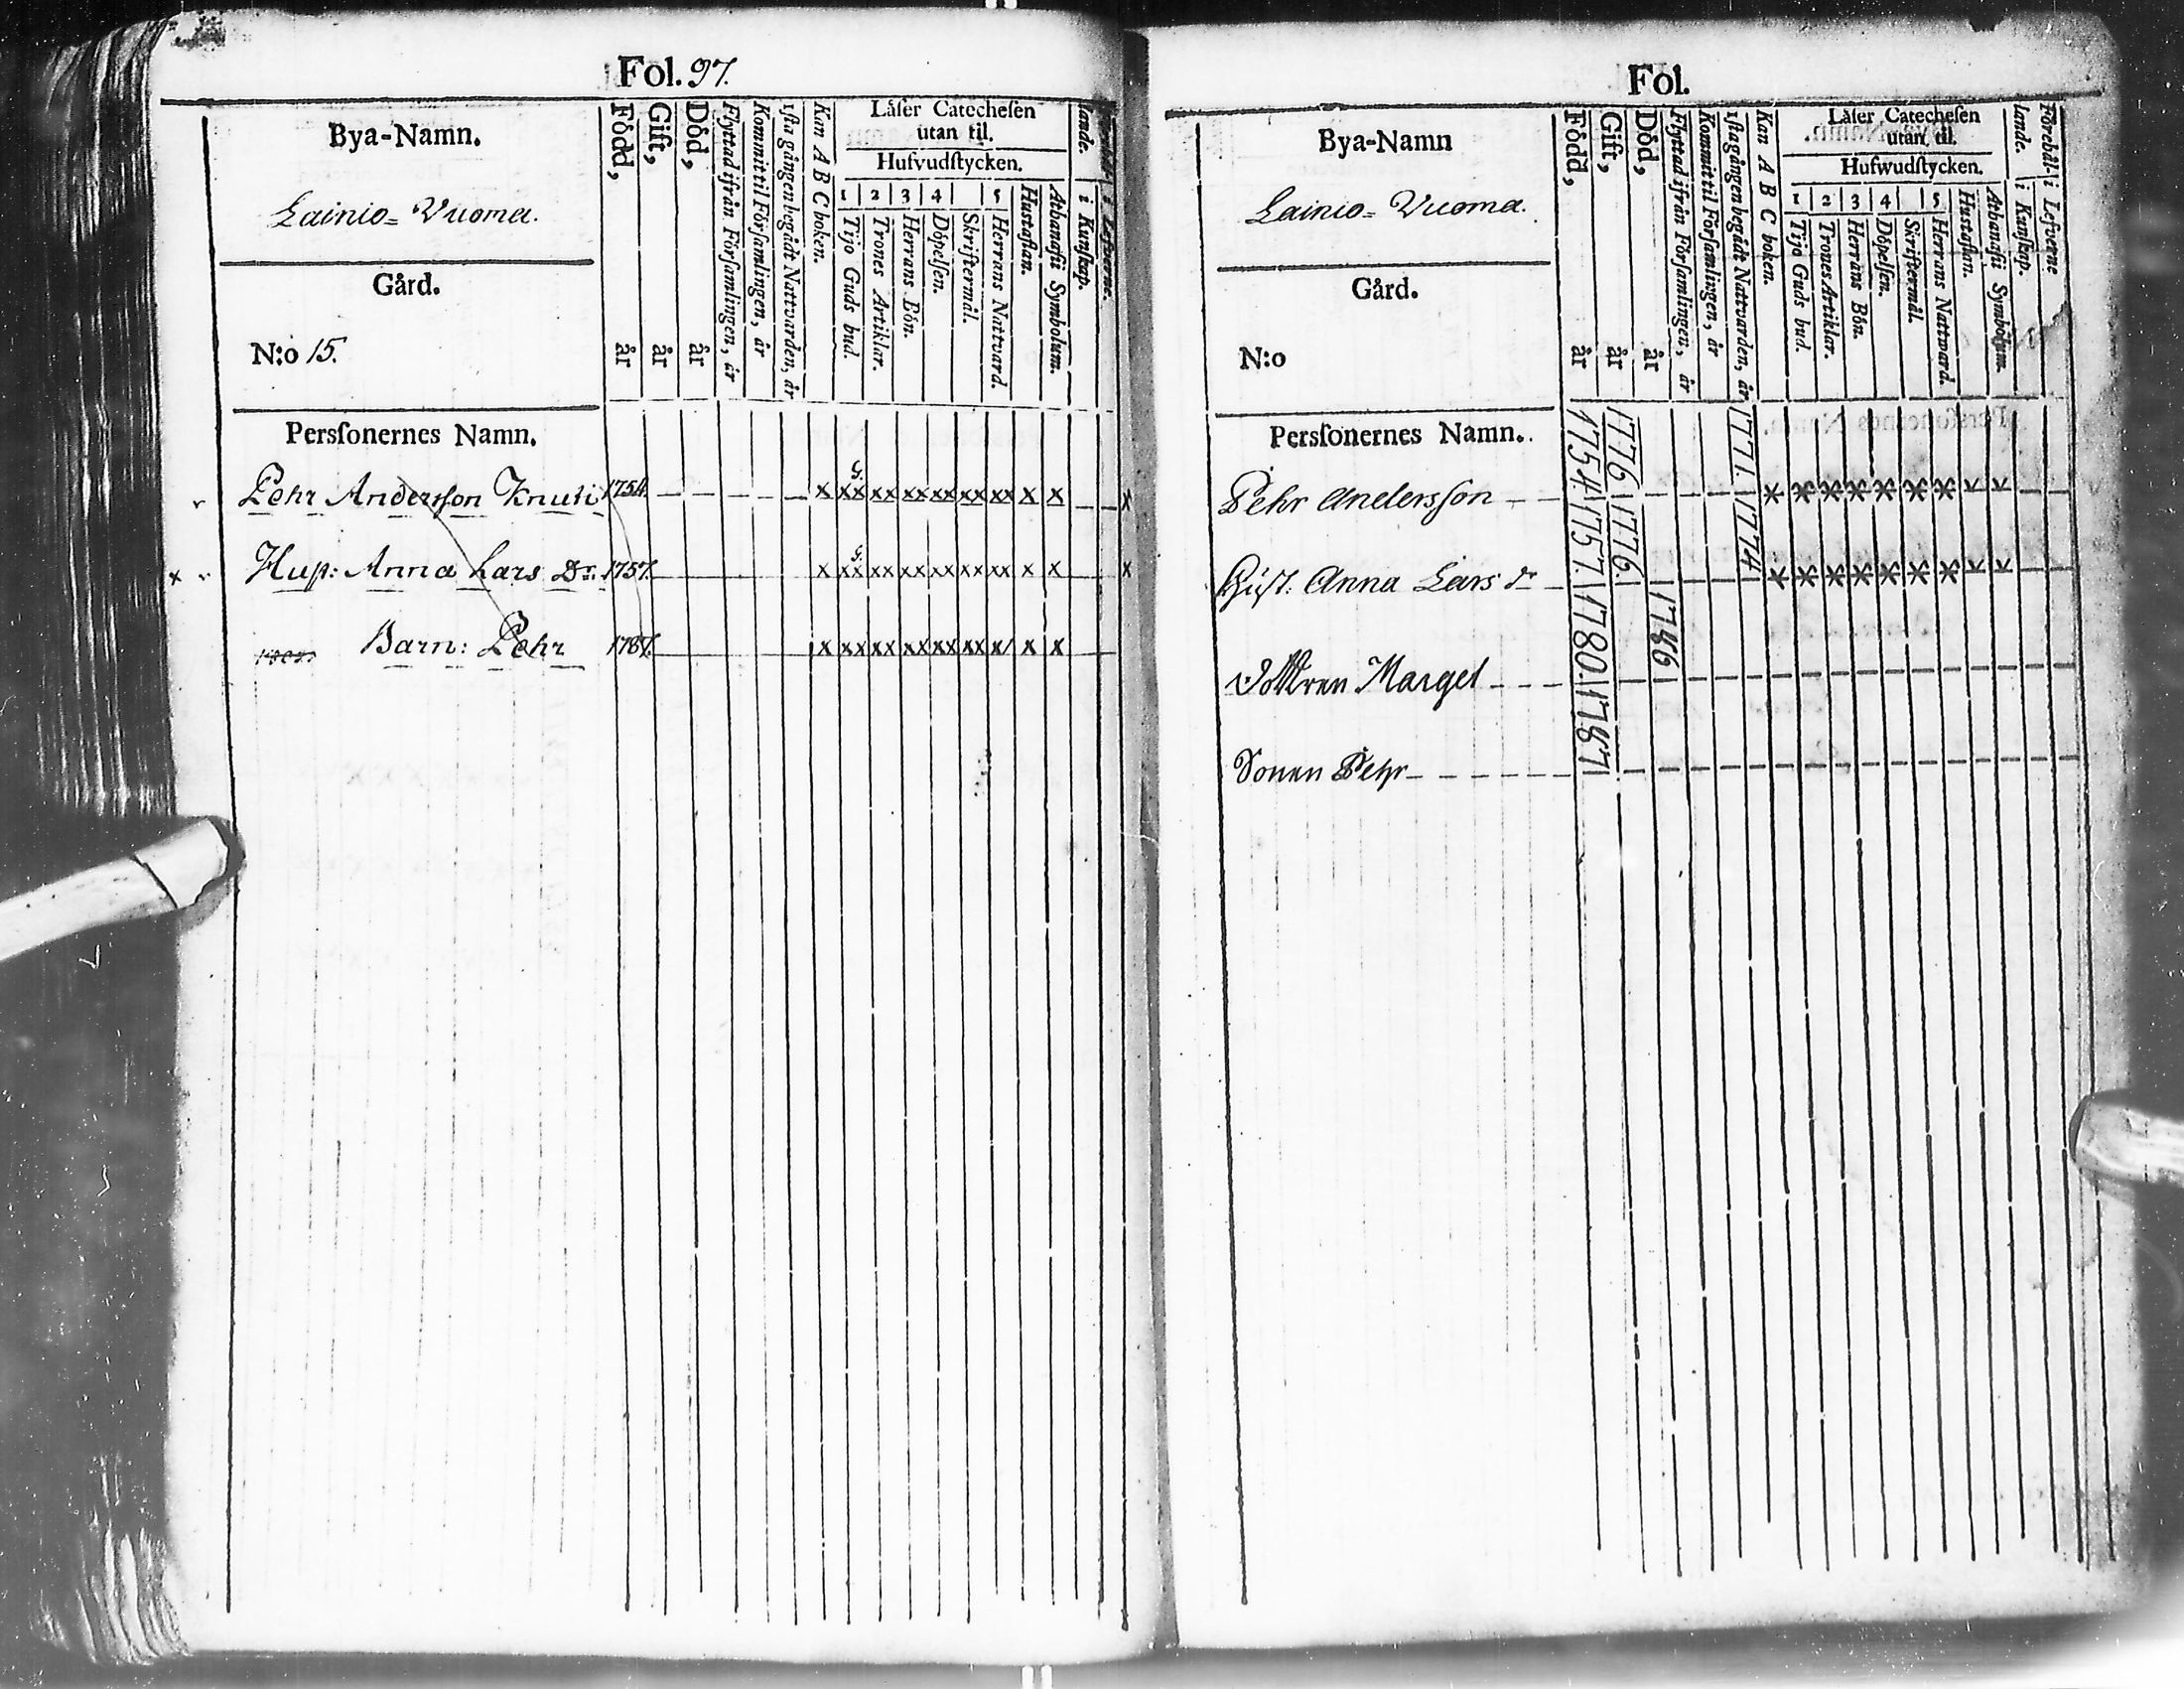 Fol. 97.
Bya-Namn.
Lainio= Vuoma.
Gård.
N:o 15.
Född, år
Gift, år
Död, år
Flyttad ifrån Församlingen, år
Kommit til Församlingen, år
1sta gången begådt Nattvarden, år
Kan A B C boken.
Låſer Catecheſen
utan til.
Hufvudſtycken.
1 2 3 4 5
Tijo Guds bud.
Trones Artiklar.
Herrans Bön.
Döpelſen.
Skriftermål.
Herrans Nattvard.
Huſtaflan.
Athanaſii Symbolum.
lande.
i Kunſkap.
i Lefverne.
Perſonernes Namn.
Pehr Andersſon Knuti 1754. x xx xx xx xx xx xx x x x
G.
x Huſ: Anna Lars Dr. 1757. x xx xx xx xx xx xx x x x
G.
Barn: Pehr 1787. x xx xx xx xx xx x/ x x
Fol.
Bya-Namn
Lainio= Vuoma.
Gård.
N:o
Född, år
Gift, år
Död, år
Flyttad ifrån Församlingen, år
Kommit til Församlingen, år
1sta gången begådt Nattvarden, år
Kan A B C boken.
Låſer Catecheſen
utan til.
Hufwudſtycken.
1 2 3 4 5
Tijo Guds bud.
Trones Artiklar.
Herrans Bön.
Döpelſen.
Skriftermål.
Herrans Nattward.
Huſtaflan.
Athanaſii Symbolum.
Förehål-
lande.
i Kunſkap.
i Lefverne
Perſonernes Namn.
Pehr Andersſon 1754 1776 1771.
Huſt. Anna Lars dr 1757. 1776. 1774
Dottren Marget 1780. 1786
Sonen Pehr 1787